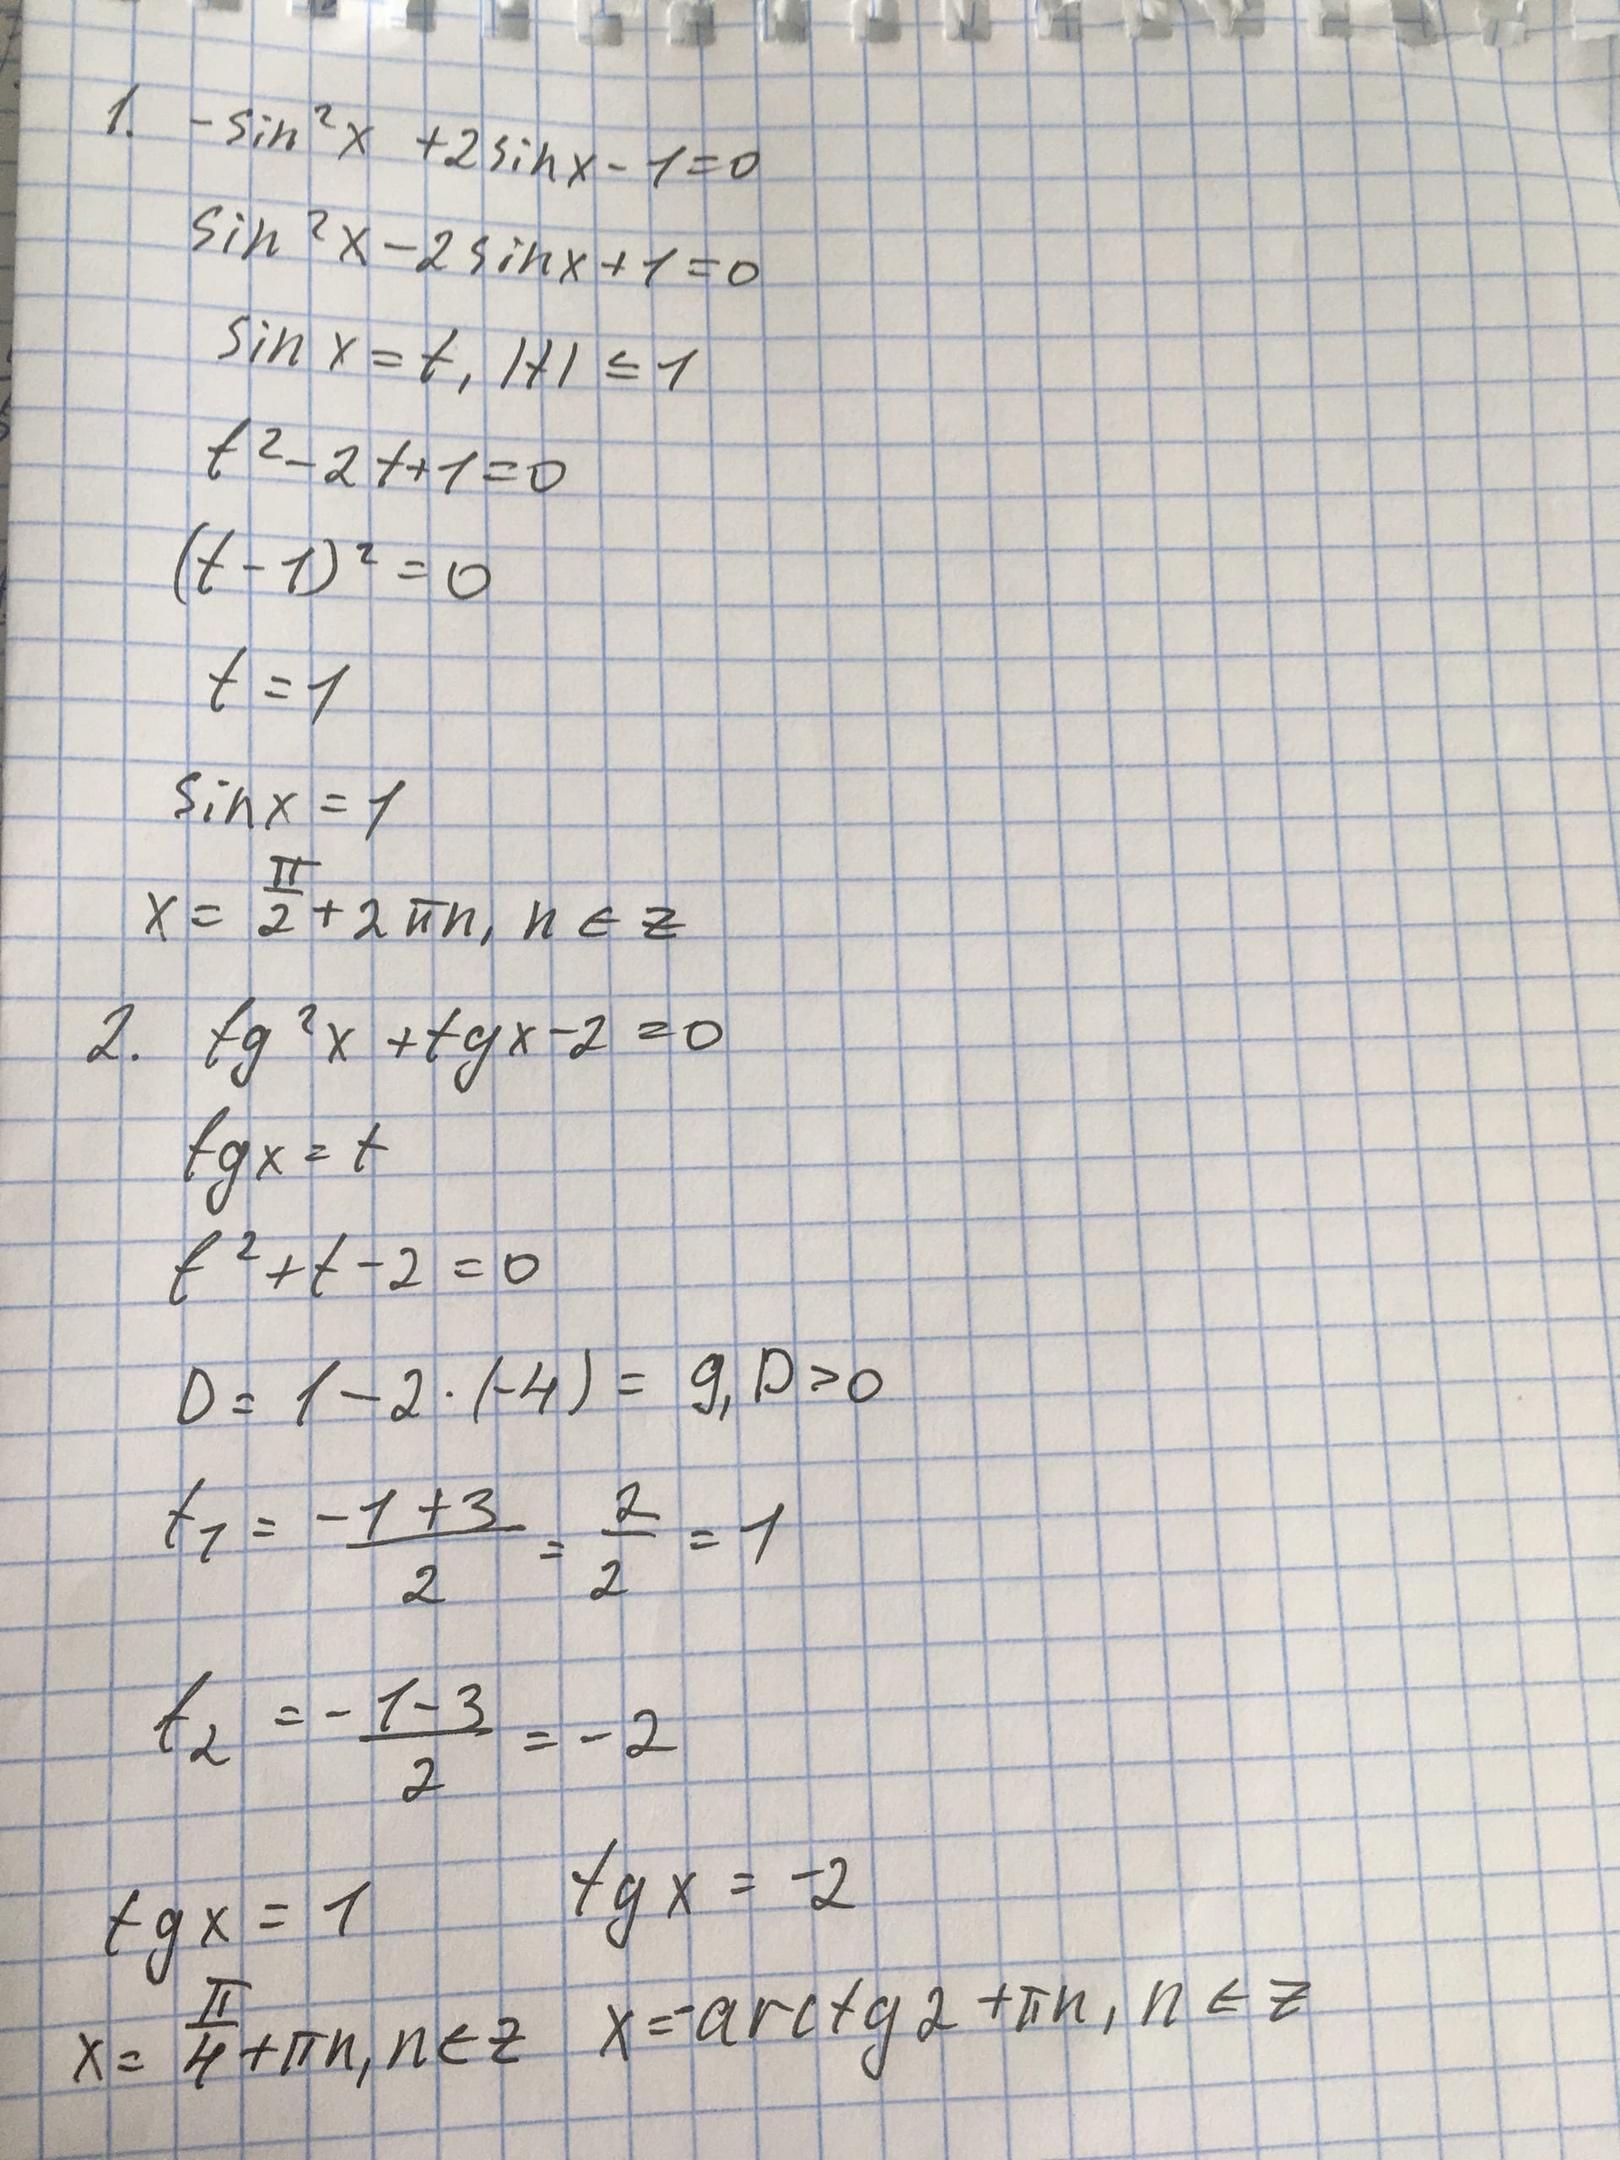 1. -sin²x +2sinx-1=0
sin²x-2sinx+1=0
sin x=t, |t|≤1
t²-2t+1=0
(t-1)²=0
t=1
sinx=1
x= π/2+2πn, n∈z
2. tg²x+tgx-2=0
tgx=t
t²+t-2=0
D= 1-2·(-4)= 9, D>0
t₁= (-1+3)/2 = 2/2 =1
t₂ =-(1-3)/2 =-2
tgx=1 tgx=-2
x= π/4+πn, n∈z x=-arctg2+πn, n∈z